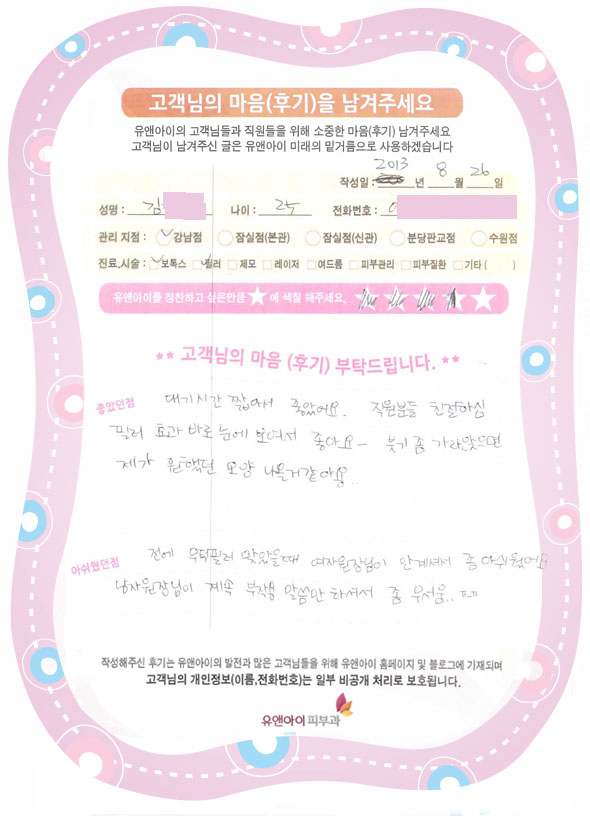 고객님의 마음(후기)을 남겨주세요
유앤아이의 고객님들과 직원들을 위해 소중한 마음(후기) 남겨주세요
고객님이 남겨주신 글은 유앤아이 미래의 밑거름으로 사용하겠습니다
작성일 : 2013 년 8 월 26 일
성명 : 김 나이 : 25 전화번호 : 0
관리 지점 : 강남점 잠실점(본관) 잠실점(신관) 분당판교점 수원점
진료,시술 : 보톡스 필러 제모 레이저 여드름 피부관리 피부질환 기타 ( )
유앤아이를 칭찬하고 싶은만큼 ★ 에 색칠 해주세요.
** 고객님의 마음 (후기) 부탁드립니다. **
좋았던점 대기시간 짧아서 좋았어요. 직원분들 친절하심
필러 효과 바로 눈에 보여서 좋아요~ 붓기 좀 가라앉으면
제가 원했던 모양 나올거같아요..
아쉬웠던점 전에 무턱필러 맞았을때 여자원장님이 안계셔서 좀 아쉬웠어요
남자원장님이 계속 부작용 말씀만 하셔서 좀 무서움.. ㅠㅠ
작성해주신 후기는 유앤아이의 발전과 많은 고객님들을 위해 유앤아이 홈페이지 및 블로그에 기재되며
고객님의 개인정보(이름,전화번호)는 일부 비공개 처리로 보호됩니다.
유앤아이피부과